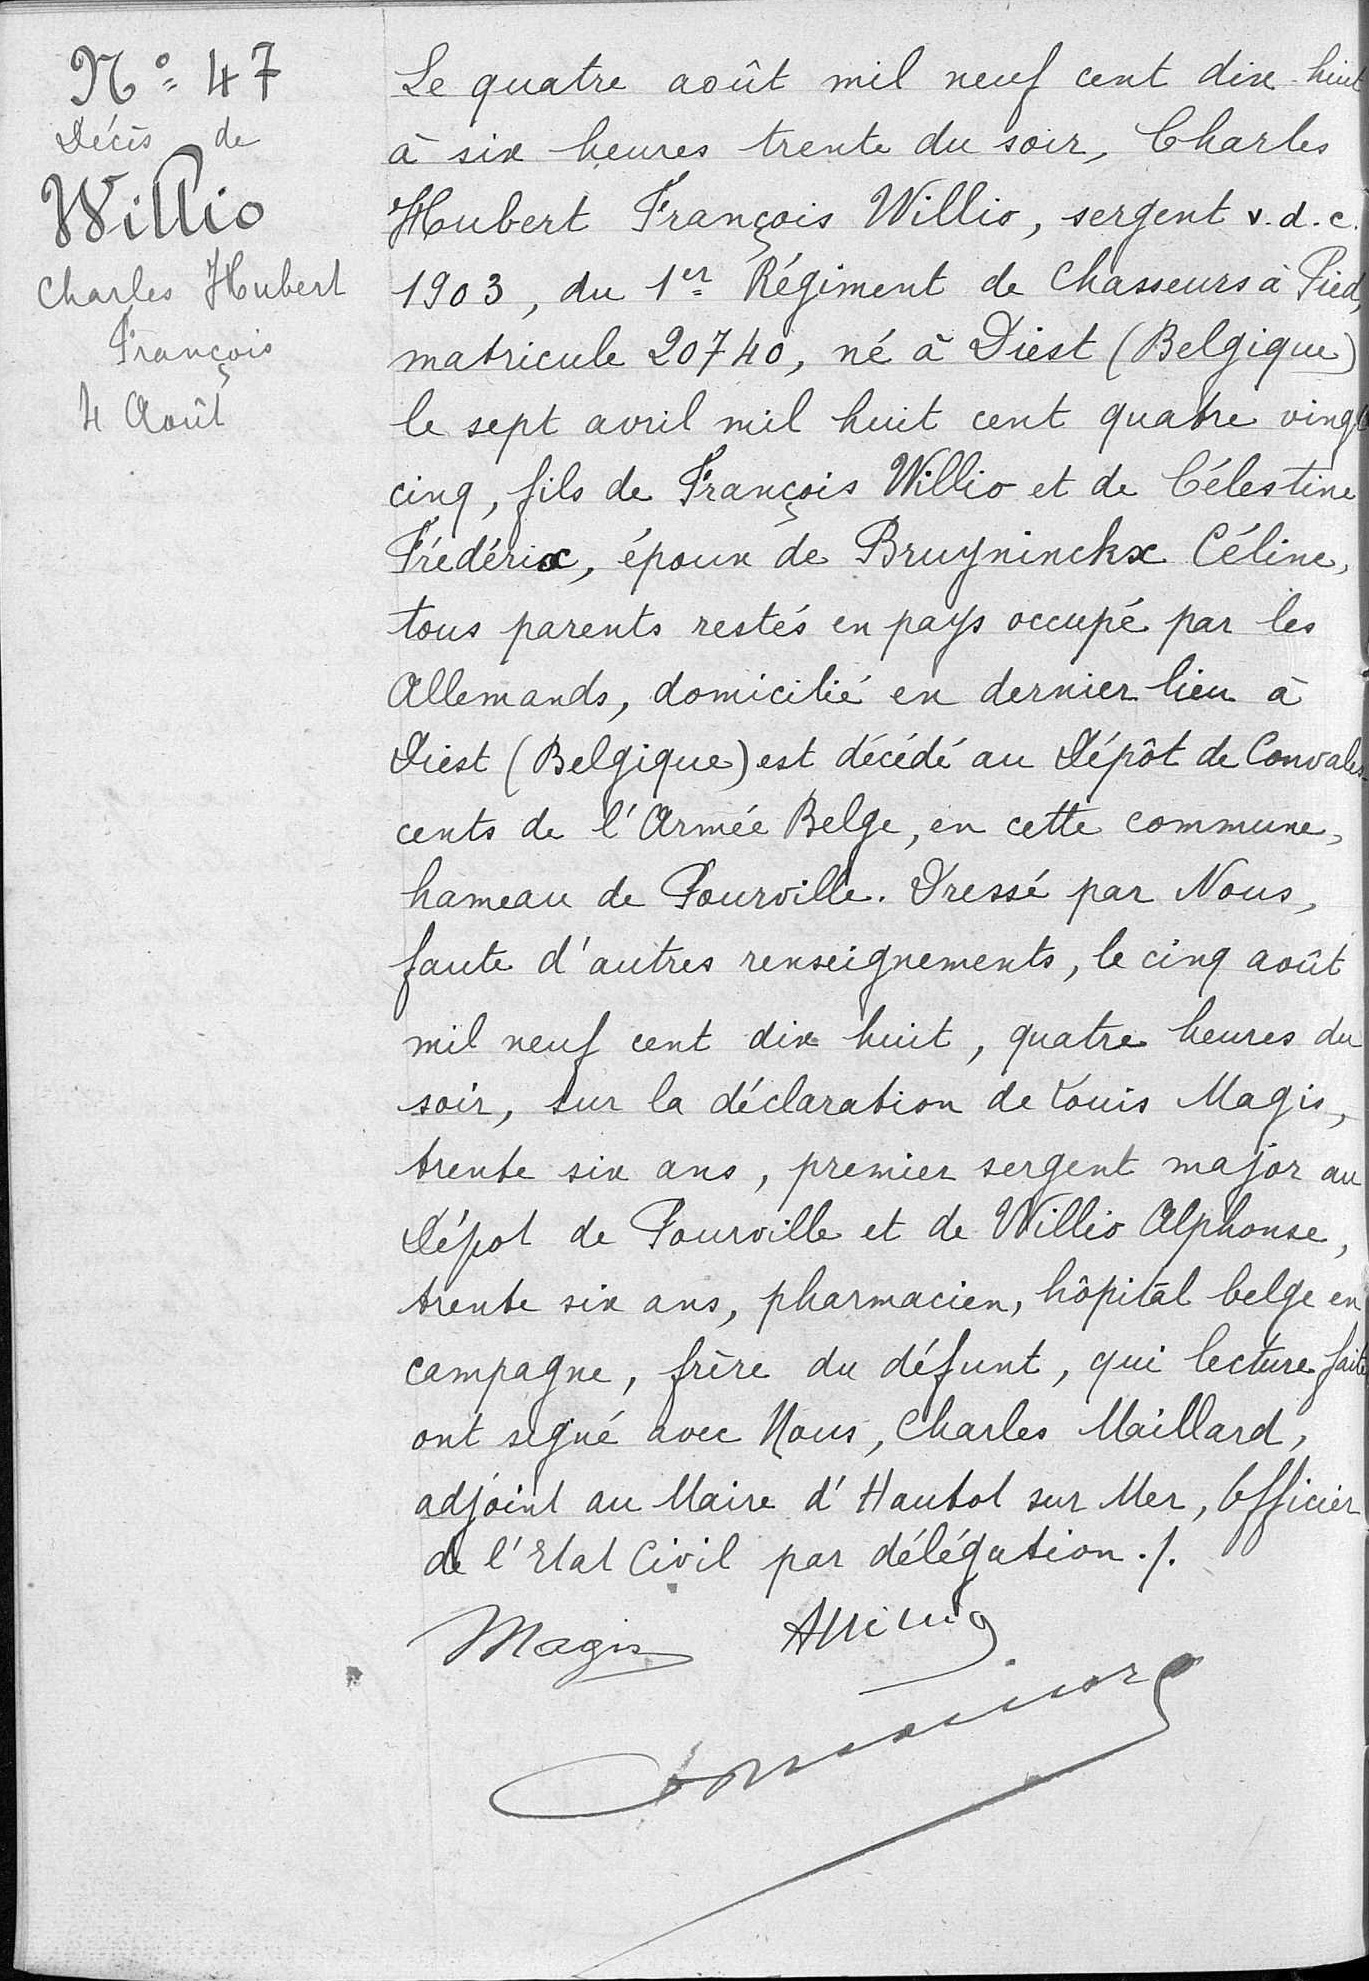 N° 47
Décès de
Willio
Charles Hubert
François
4 Août
Le quatre août mil neuf cent dix huit
à six heures trente du soir, Charles
Hubert François Willio, sergent v.d.c.
1903, du 1er Régiment de Chasseurs à Pied,
matricule 20740, né à Diest (Belgique)
le sept avril mil huit cent quatre vingt
cinq, fils de François Willio et de Célestine
Frédérix, époux de Bruyninckx Céline,
tous parents restés en pays occupé par les
Allemands, domicilié en dernier lieu à
Diest (Belgique) est décédé au Dépôt de Convales-
cents de l'Armée Belge, en cette commune,
hameau de Pourville. Dressé par Nous,
faute d'autres renseignements, le cinq août
mil neuf cent dix huit, quatre heures du
soir, sur la déclaration de Louis Magis,
trente six ans, premier sergent major au
Dépot de Pourville et de Willio Alphonse,
trente six ans, pharmacien, hôpital belge en
campagne, frère du défunt, qui lecture faite
ont signé avec Nous, Charles Maillard,
adjoint au Maire d'Hautot sur Mer, Officier
de l'Etat Civil par délégation ./.
Magis